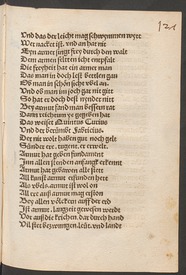 121
Vnd das der leicht mag schwymmen wyt
Wer nacket ist, vnd an hat nit
Eyn armer singt frey durch den walt
Dem armen selten icht empfalt
Die freiheit hat ein armer man
Das man in doch lest betlen gan
Ob man in schon sicht vbel an.
Vnd ob man im joch gar nit geit
So hat er doch dest mynder nit
Bey armut fand man bessern rat
Dann reichtum ye gegeben hat
Das weiset Quintus Curius
Vnd der berümbt Fabricius.
Der nit wolt haben gut noch gelt
Sunder er. tugent. er erwelt.
Armut hat geben fundament
Inn allen stenden anfengk erkennt
Armut hat gebauwen all stett
All kunst armut erfunden hett
Als vbels. armut ist wol on
All ere auß armut mag erston
Bey allen völckern auff der erd
Ist armut. langzeit gewesen werdt
Vor auß die kriechen. dar durch hand
Vil stett bezwungen. leut. vnd landt